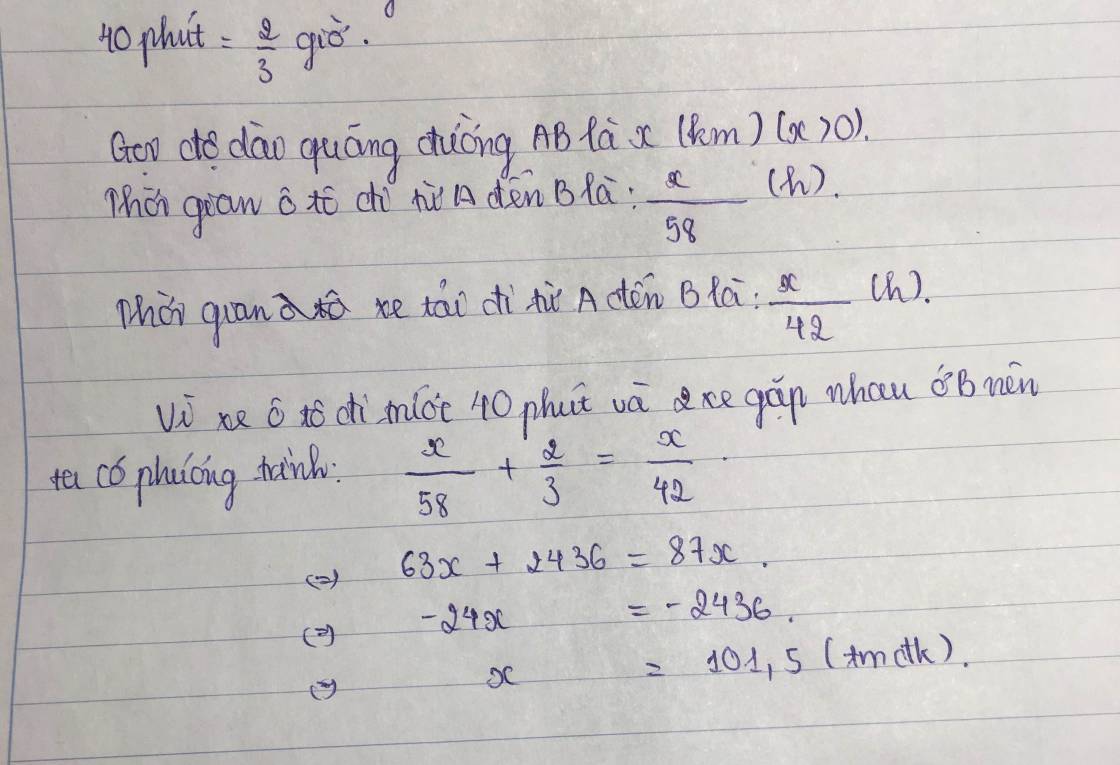 40 phút = 2/3 giờ.
Gọi độ dài quãng đường AB là x (km) (x>0).
Thời gian ô tô đi từ A đến B là: x/58 (h).
Thời gian ô tô xe tải đi từ A đến B là: x/42 (h).
Vì xe ô tô đi trước 40 phút và 2 xe gặp nhau ở B nên
ta có phương trình: x/58 + 2/3 = x/42.
(=) 63x + 2436 = 87x.
(=) -24x = -2436.
(=) x = 101,5 (tmđk).